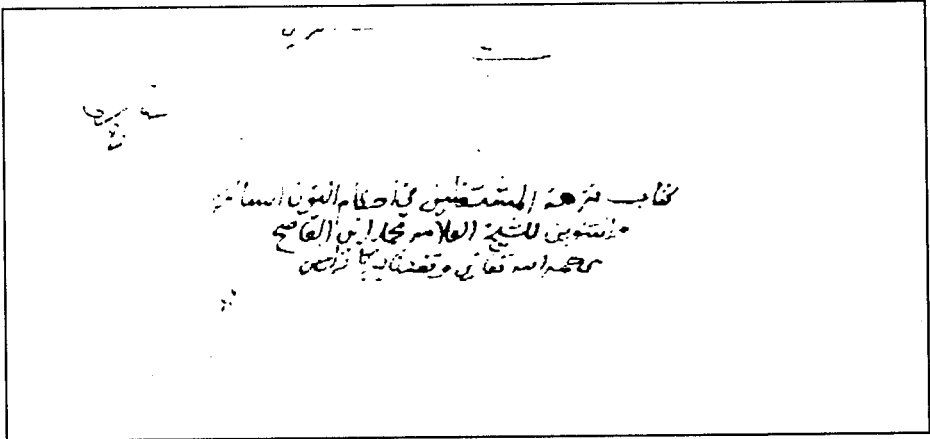 كتاب نزهة المشتغلين في احكام النون الساكن
والتنوين للشيخ العلامه محمد ابن القاصح
رحمه الله تعالى ونفعنا به امين